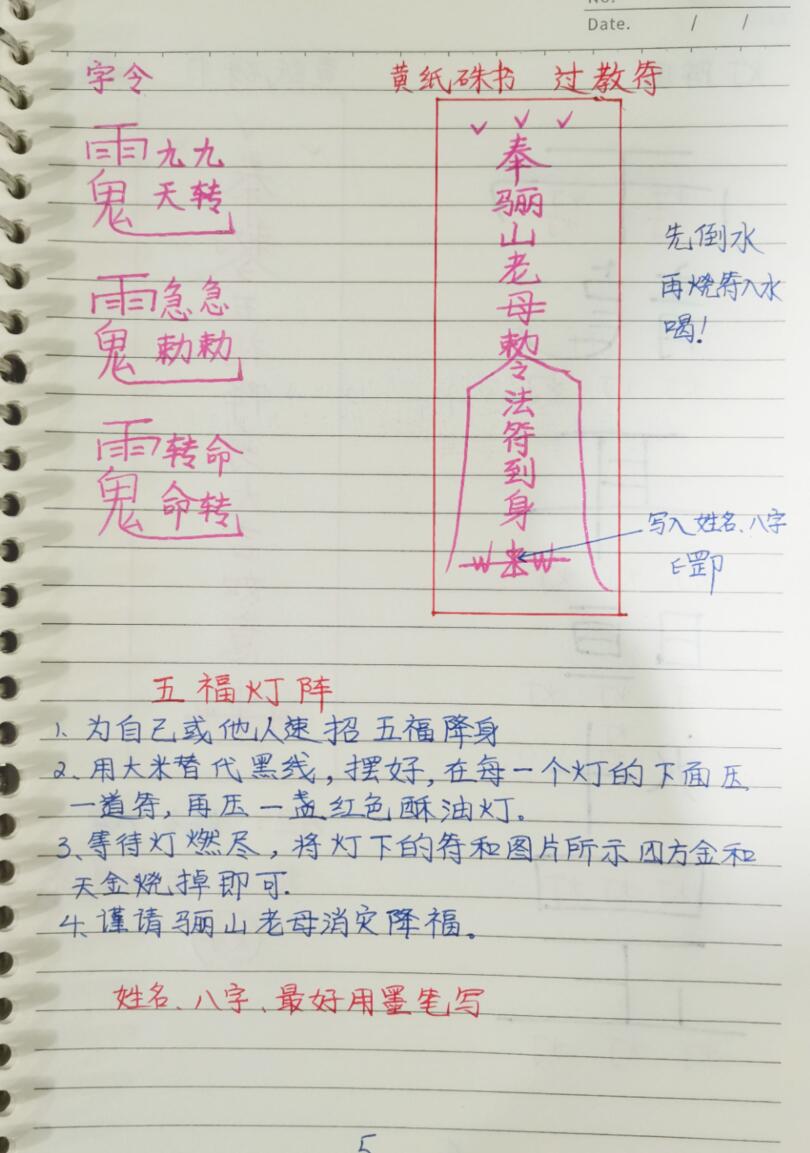 No.
Date. / /
字令
黄纸硃书 过教符
九九
天转
雨鬼
急急
勅勅
雨鬼
转命
命转
雨鬼
奉骊山老母勅令法符到身
先倒水
再烧符入水
喝!
写入姓名、八字
五福灯阵
1、为自己或他人速招五福降身
2、用大米替代黑线,摆好,在每一个灯的下面压
一道符,再压一盏红色酥油灯。
3、等待灯燃尽,将灯下的符和图片所示四方金和
天金烧掉即可.
4、谨请骊山老母消灾降福。
姓名、八字、最好用墨笔写
5